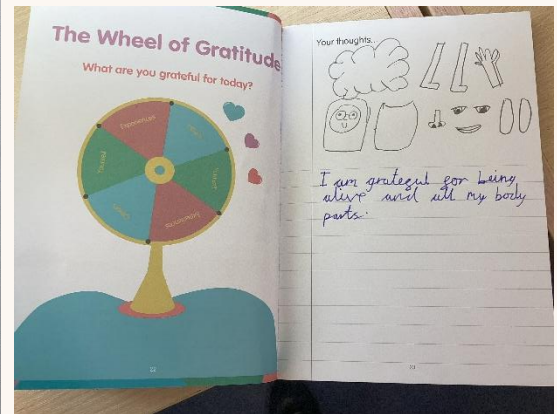 The Wheel of Gratitude
What are you grateful for today?
Experiences
People
Experiences
22
Your thoughts...
I am grateful for being
alive and all my body
parts.
23